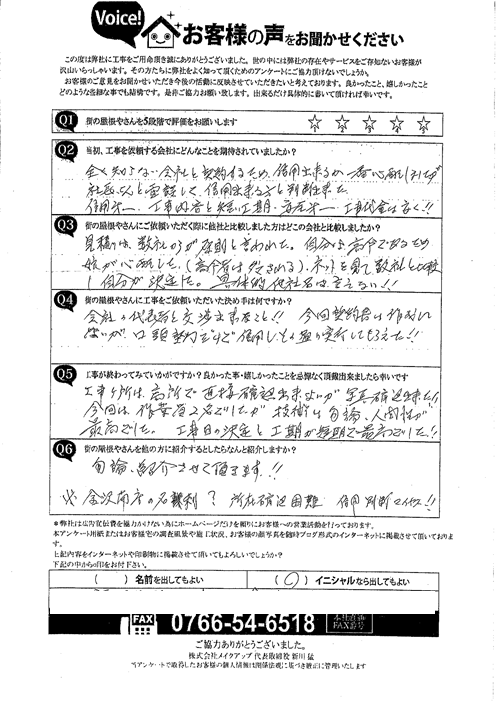 Voice!
お客様の声をお聞かせください
この度は弊社に工事をご用命頂き誠にありがとうございました。世の中には弊社の存在やサービスをご存知ないお客様が
沢山いらっしゃいます。その方たちに弊社をよく知って頂くためのアンケートにご協力頂けないでしょうか。
お客様のご意見をお聞かせいただき今後の活動に反映させていただきたいと考えております。良かったこと、嬉しかったこと
どのような些細な事でも結構です。是非ご協力お願い致します。出来るだけ具体的に書いて頂ければ幸いです。
Q1 街の屋根やさんを5段階で評価をお願いします ☆ ☆ ☆ ☆ ☆
Q2 当初、工事を依頼する会社にどんなことを期待されていましたか?
全く知らない会社と契約するため、信用出来るか一番心配しましたが
社長さんと面談して、信用出来る方と判断出来た
信用第一、工事内容と
工期・
工事代金は安く!!
Q3 街の屋根やさんにご依頼いただく際に他社と比較しました方はどこの会社と比較しましたか?
見積は、数社のうが原則と言われた。自分は高令であるため
娘が心配した。(高令者はダマされる)、ネットを見て数社と比較
し自分が決定した。具体的他社名は言えない!!
Q4 街の屋根やさんに工事をご依頼いただいた決め手は何ですか?
会社の代表者と交渉出来たこと!! 今回契約書は作成し
ないが口頭契約だけど信用し
実行してもらえた!!
Q5 工事が終わってみていかがですか?良かった事・嬉しかったことを忌憚なく頂戴出来ましたら幸いです
工事ヶ所は高所で直接確認出来ないが写真確認出来た!!
今回は作業員2名でしたが技術は勿論、人間性が
最高でした。工事日の決定と工期が短期で最高でした!!
Q6 街の屋根やさんを他の方に紹介するとしたらなんと紹介しますか?
勿論、紹介させて頂きます!!
金沢南店の名義
?所在確認困難 信用判断マイナス!!
*弊社は広告宣伝費を協力かけない為にホームページだけを頼りにお客様への営業活動を行っております。
本アンケート用紙またはお客様宅の調査風景や施工状況、お客様の顔写真を随時ブログ形式のインターネットに掲載させて頂いております。
上記内容をインターネットや印刷物に掲載させて頂いてもよろしいでしょうか?
下記の中から○印をお付下さい。
( ) 名前を出してもよい
(○) イニシャルなら出してもよい
FAX 0766-54-6518 本社直通 FAX番号
ご協力ありがとうございました。
株式会社メイクアップ 代表取締役 新川 猛
当アンケートで取得したお客様の個人情報は関係法規に基づき厳正に管理いたします